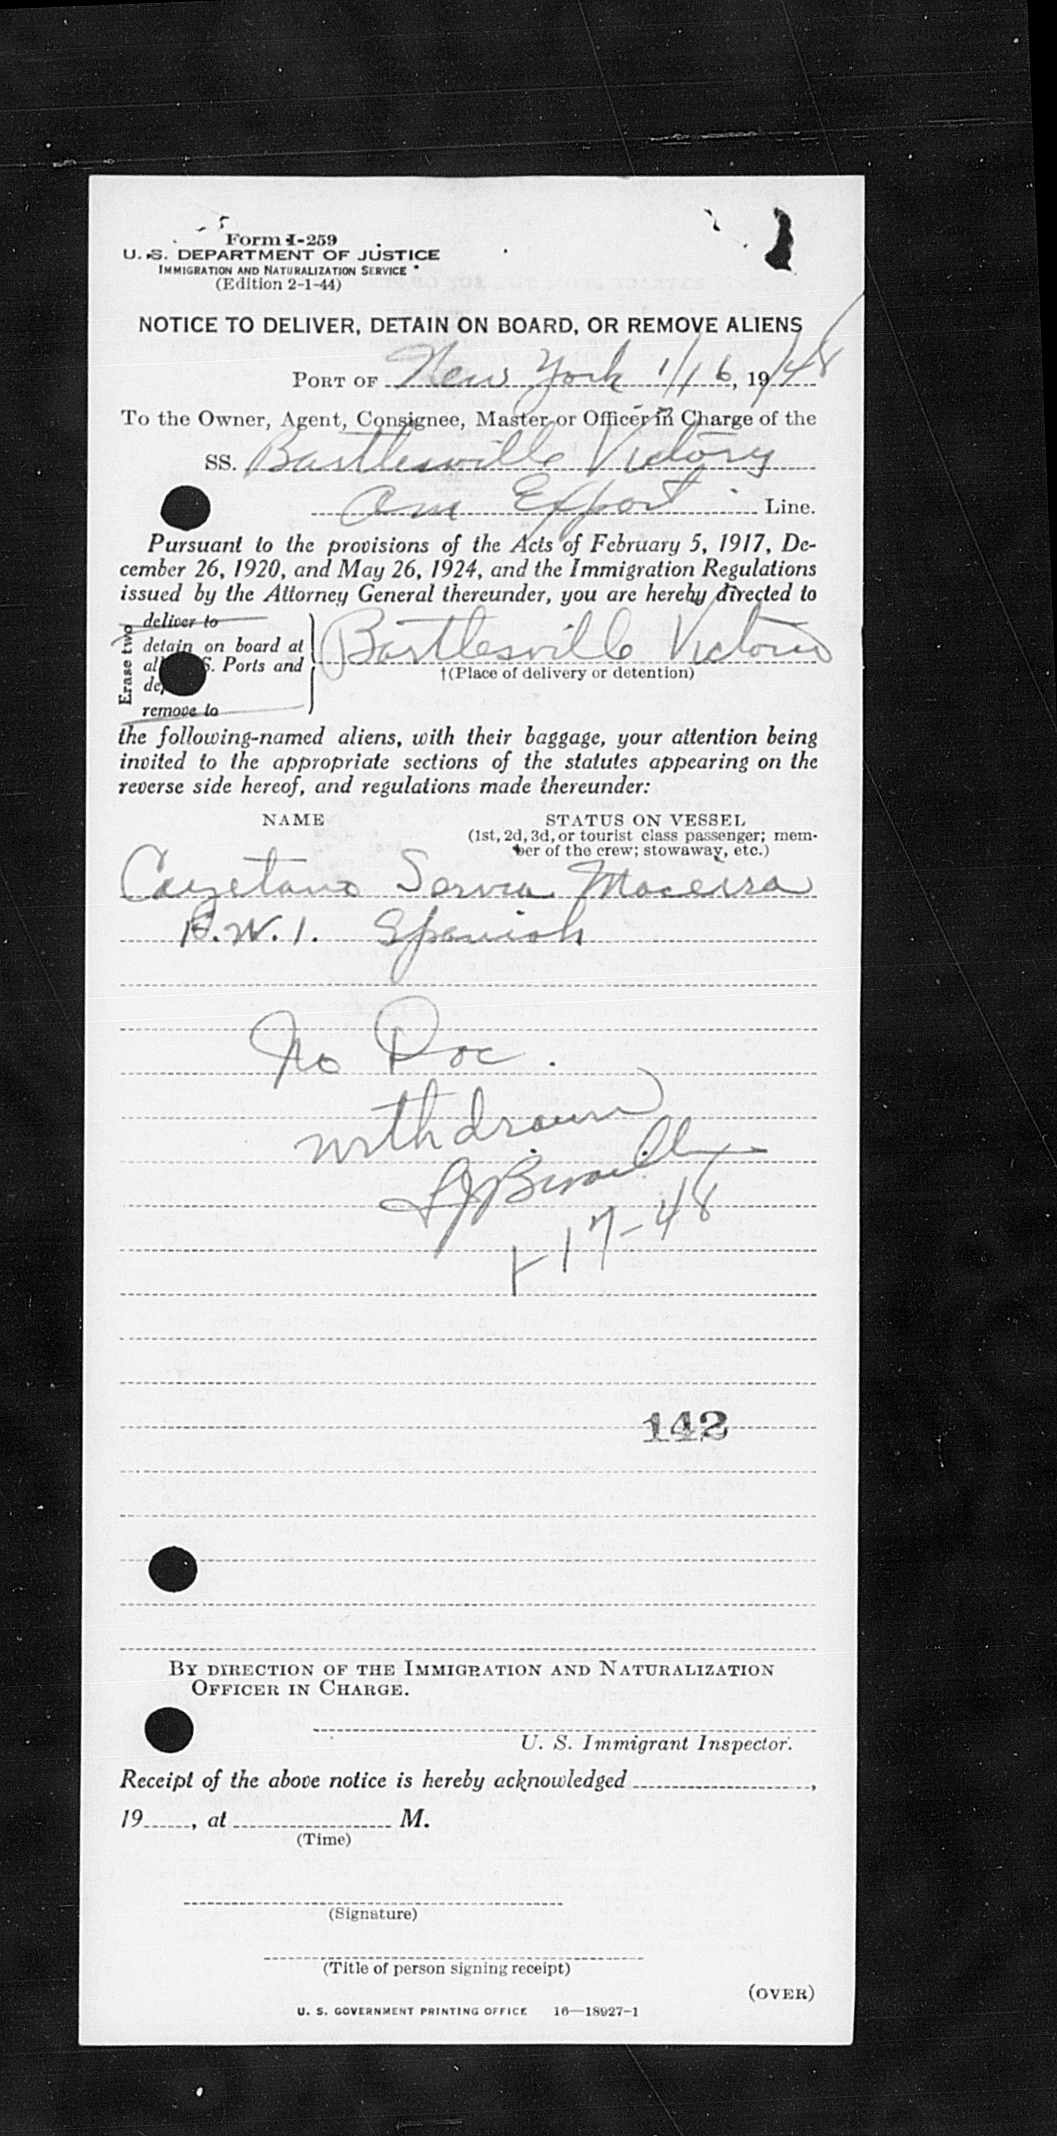 Form I-259
U. S. DEPARTMENT OF JUSTICE
IMMIGRATION AND NATURALIZATION SERVICE
(Edition 2-1-44)
NOTICE TO DELIVER, DETAIN ON BOARD, OR REMOVE ALIENS
PORT OF New York 1/16, 19 48
To the Owner, Agent, Consignee, Master or Officer in Charge of the
SS. Bartlesville Victory
Am Export Line.
Pursuant to the provisions of the Acts of February 5, 1917, De-
cember 26, 1920, and May 26, 1924, and the Immigration Regulations
issued by the Attorney General thereunder, you are hereby directed to
Erase two
deliver to
detain on board at
al S. Ports and
de
remove to
Bartlesville Victory
†(Place of delivery or detention)
the following-named aliens, with their baggage, your attention being
invited to the appropriate sections of the statutes appearing on the
reverse side hereof, and regulations made thereunder:
NAME STATUS ON VESSEL
(1st, 2d, 3d, or tourist class passenger; mem-
ber of the crew; stowaway, etc.)
Cayetano Servia Maceira
B.W.I. Spanish
No Doc.
withdrawn
1-17-48
142
BY DIRECTION OF THE IMMIGRATION AND NATURALIZATION
OFFICER IN CHARGE.
U. S. Immigrant Inspector.
Receipt of the above notice is hereby acknowledged ,
19 , at M.
(Time)
(Signature)
(Title of person signing receipt)
(OVER)
U. S. GOVERNMENT PRINTING OFFICE 16—18927-1